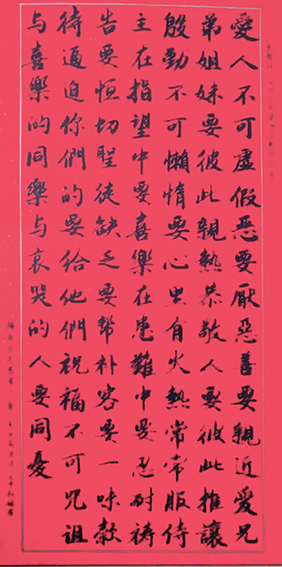 愛人不可虛假惡要厭惡善要親近愛兄
弟姐妹要彼此親熱恭敬人要彼此推讓
殷勤不可懶惰要心里有火熱常常服侍
主在指望中要喜樂在患難中要忍耐禱
告要恒切聖徒缺乏要幫補客要一味款
待逼迫你們的要給他們祝福不可咒詛
与喜樂的同樂与哀哭的人要同憂